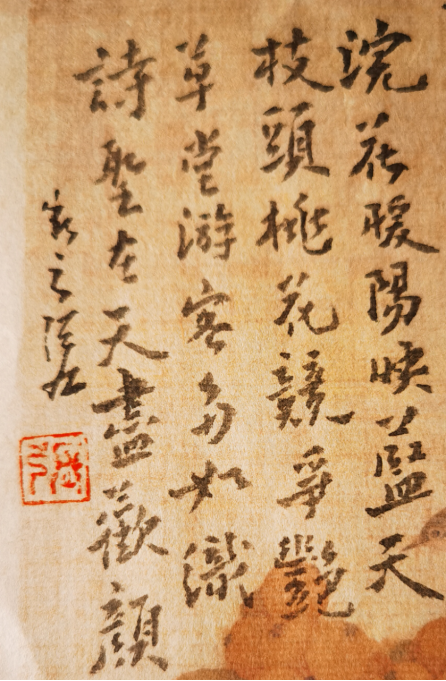 浣花暖陽映藍天
枝頭桃花競爭豔
草堂游客多如織
詩聖在天盡歡顏